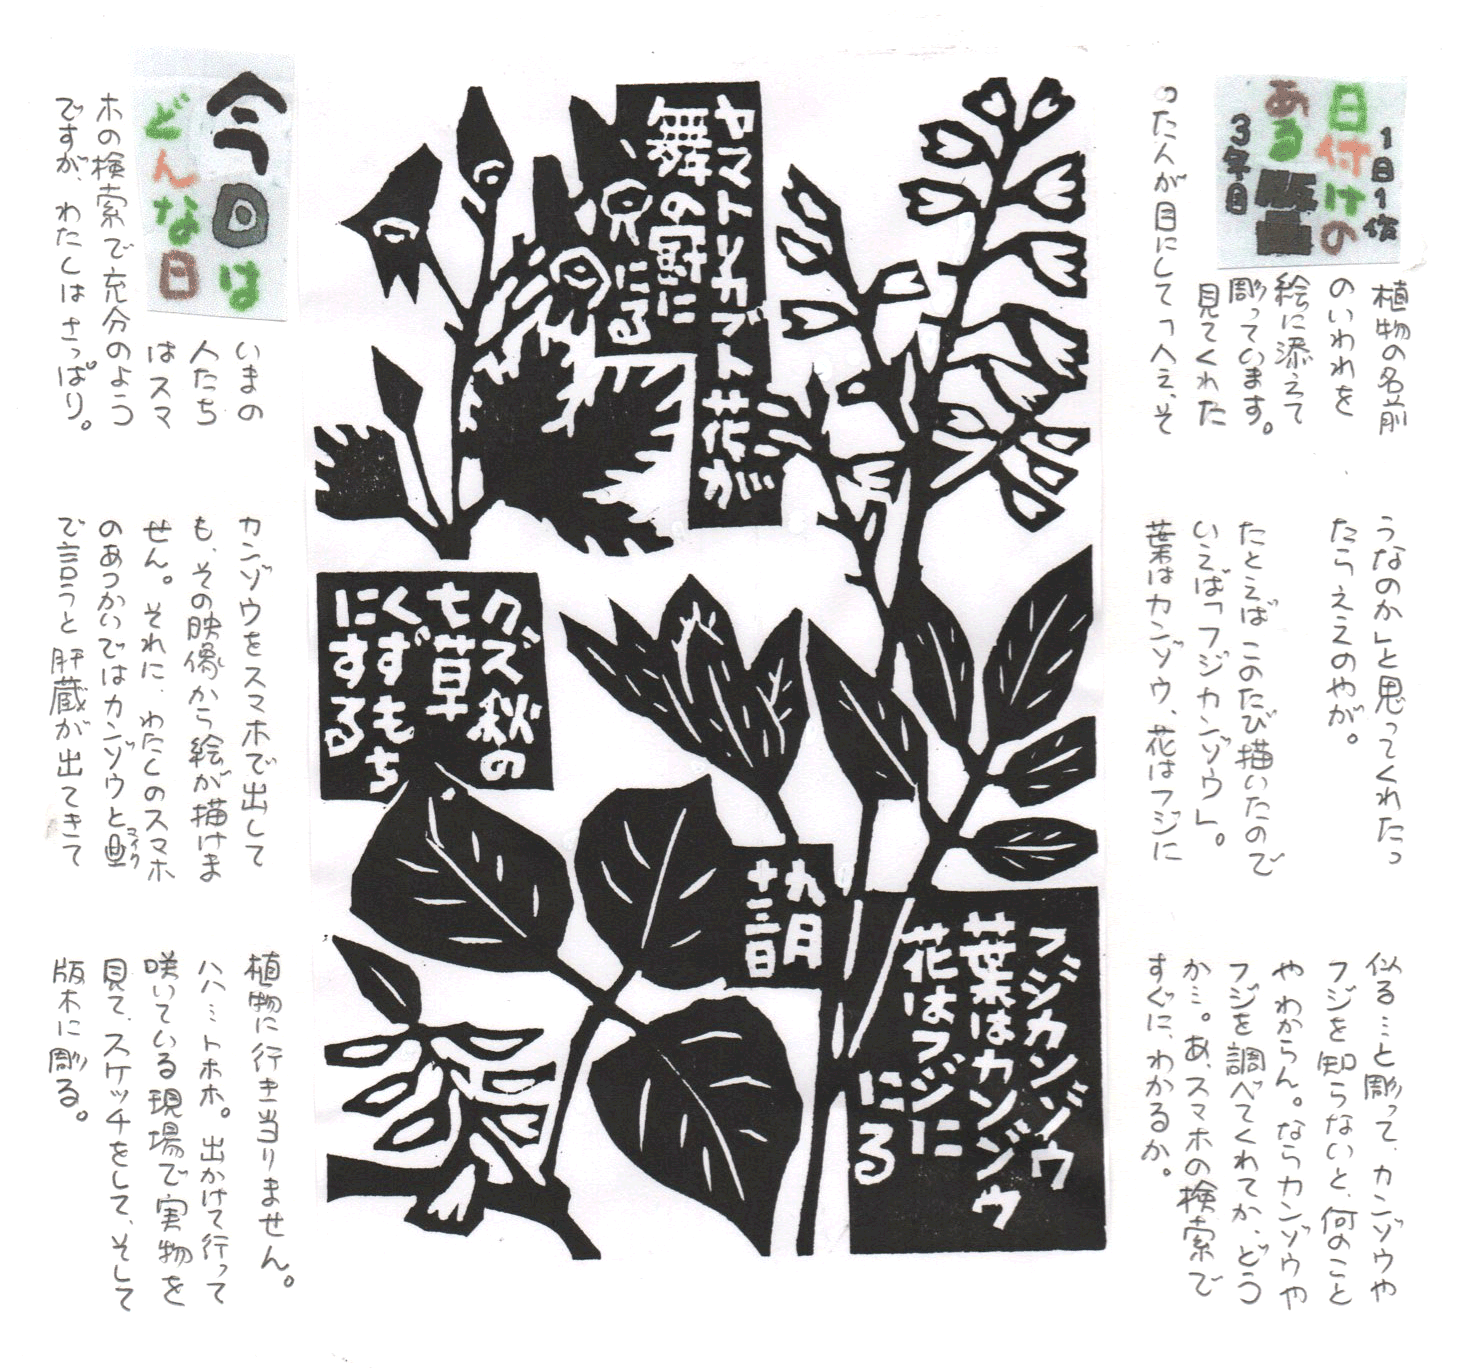 1日1作
日付けの
ある版画
3年目
植物の名前
のいわれを
絵に添えて
彫っています。
見てくれた
った人が目にして「へえ、そ
うなのか」と思ってくれたっ
たらええのやが。
たとえば このたび描いたので
いえば「フジカンゾウ」。
葉はカンゾウ、花はフジに
似る…と彫って、カンゾウや
フジを知らないと、何のこと
やわからん。ならカンゾウや
フジを調べてくれてか、どう
か…。あ、スマホの検索で
すぐに、わかるか。
ヤマトリカブト花が
舞の
にる
フジカンゾウ
葉はカンゾウ
花はフジに
にる
九月
十二日
クズ秋の
七草
くずもち
にする
今日は
どんな日
いまの
人たち
はスマ
ホの検索で充分のよう
ですが、わたしはさっぱり。
カンゾウをスマホで出して
も、その映像から絵が描けま
せん。それに、わたくのスマホ
のあつかいではカンゾウと
マイク
で言うと肝蔵が出てきて
植物に行き当りません。
ハハ…トホホ。出かけて行って
咲いている現場で実物を
見て、スケッチをして、そして
版木に彫る。